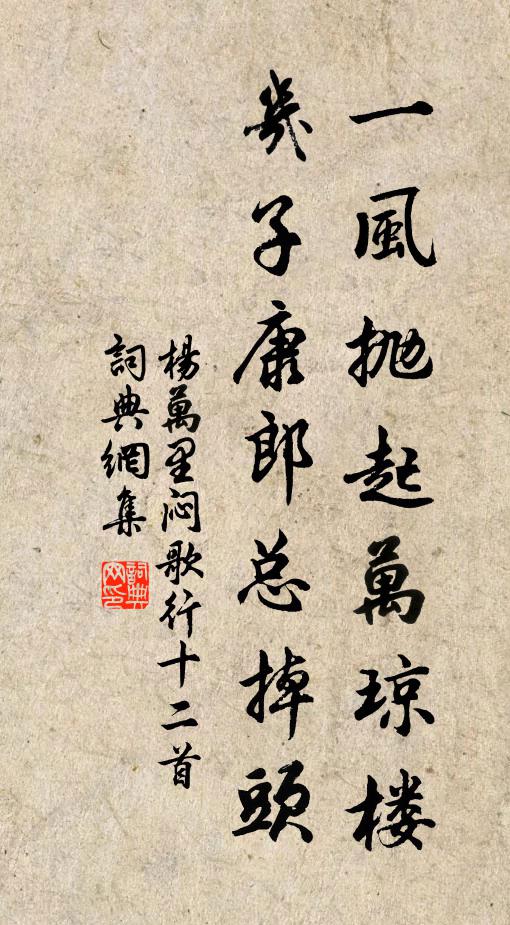 一風抛起萬琼楼
癸子康郎总掉頭
楊萬里闷歌行十二首
詞典網集
詞典网印